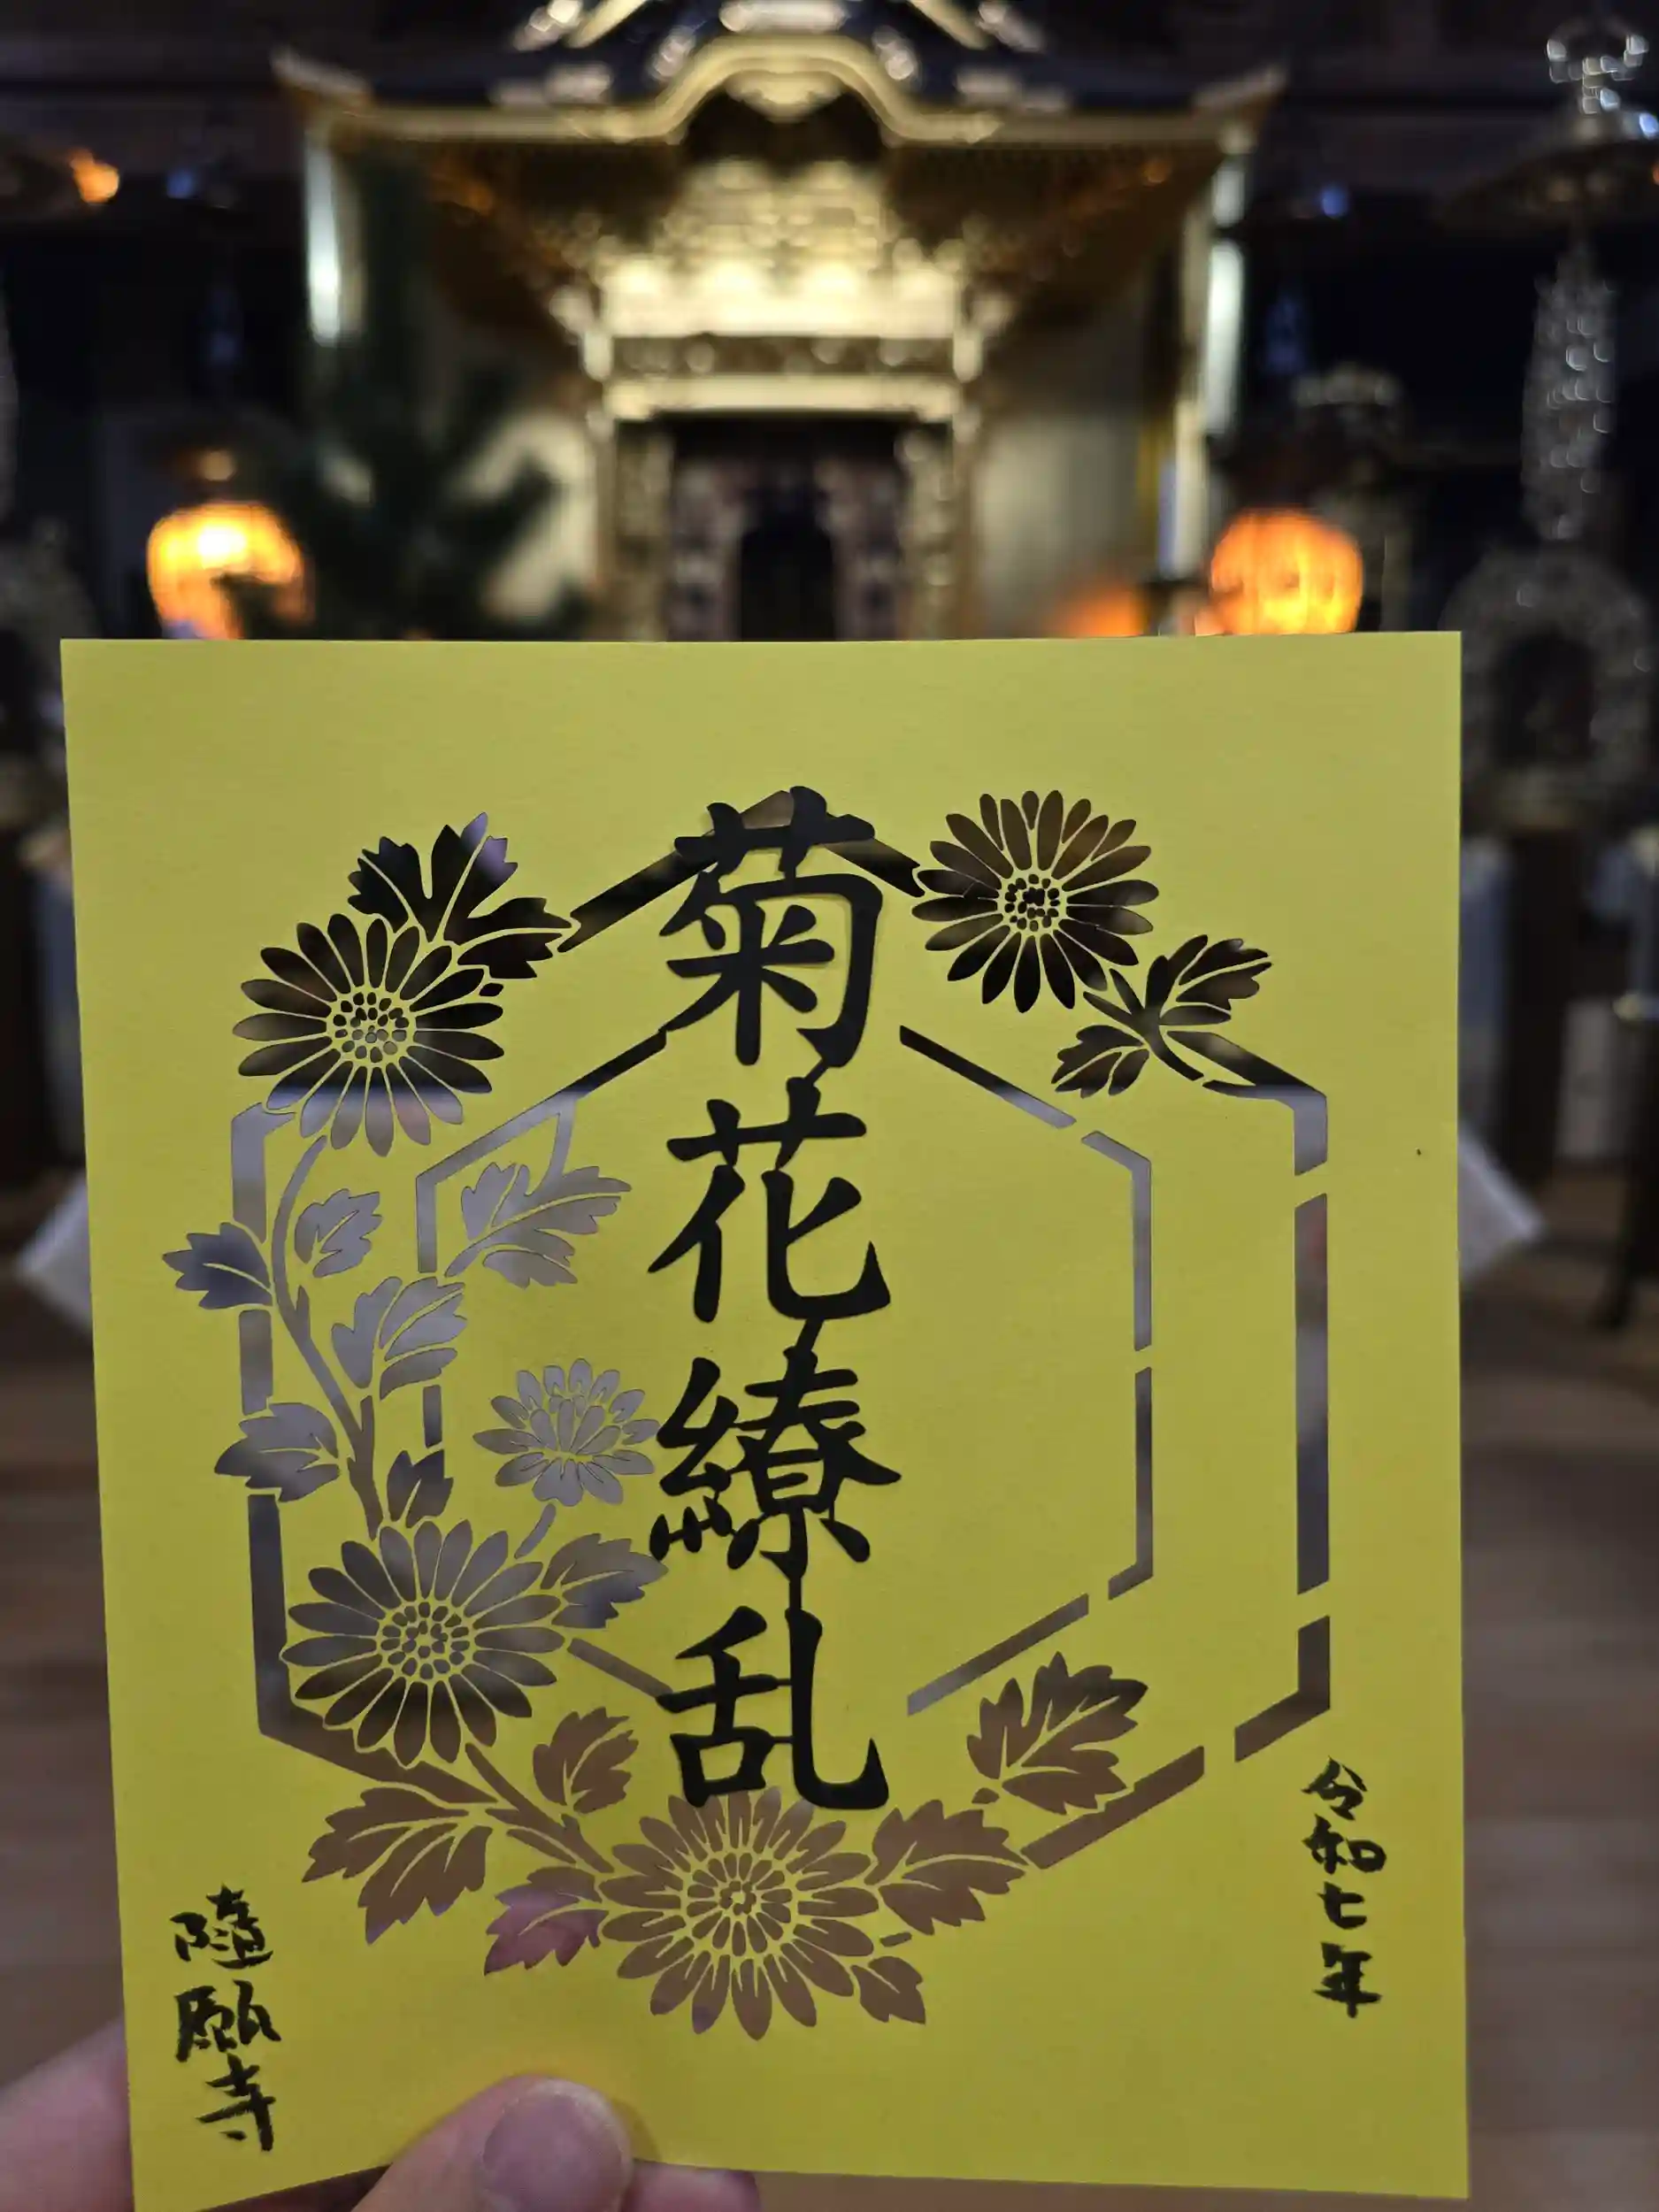 菊花繚乱
令和七年
隨願寺